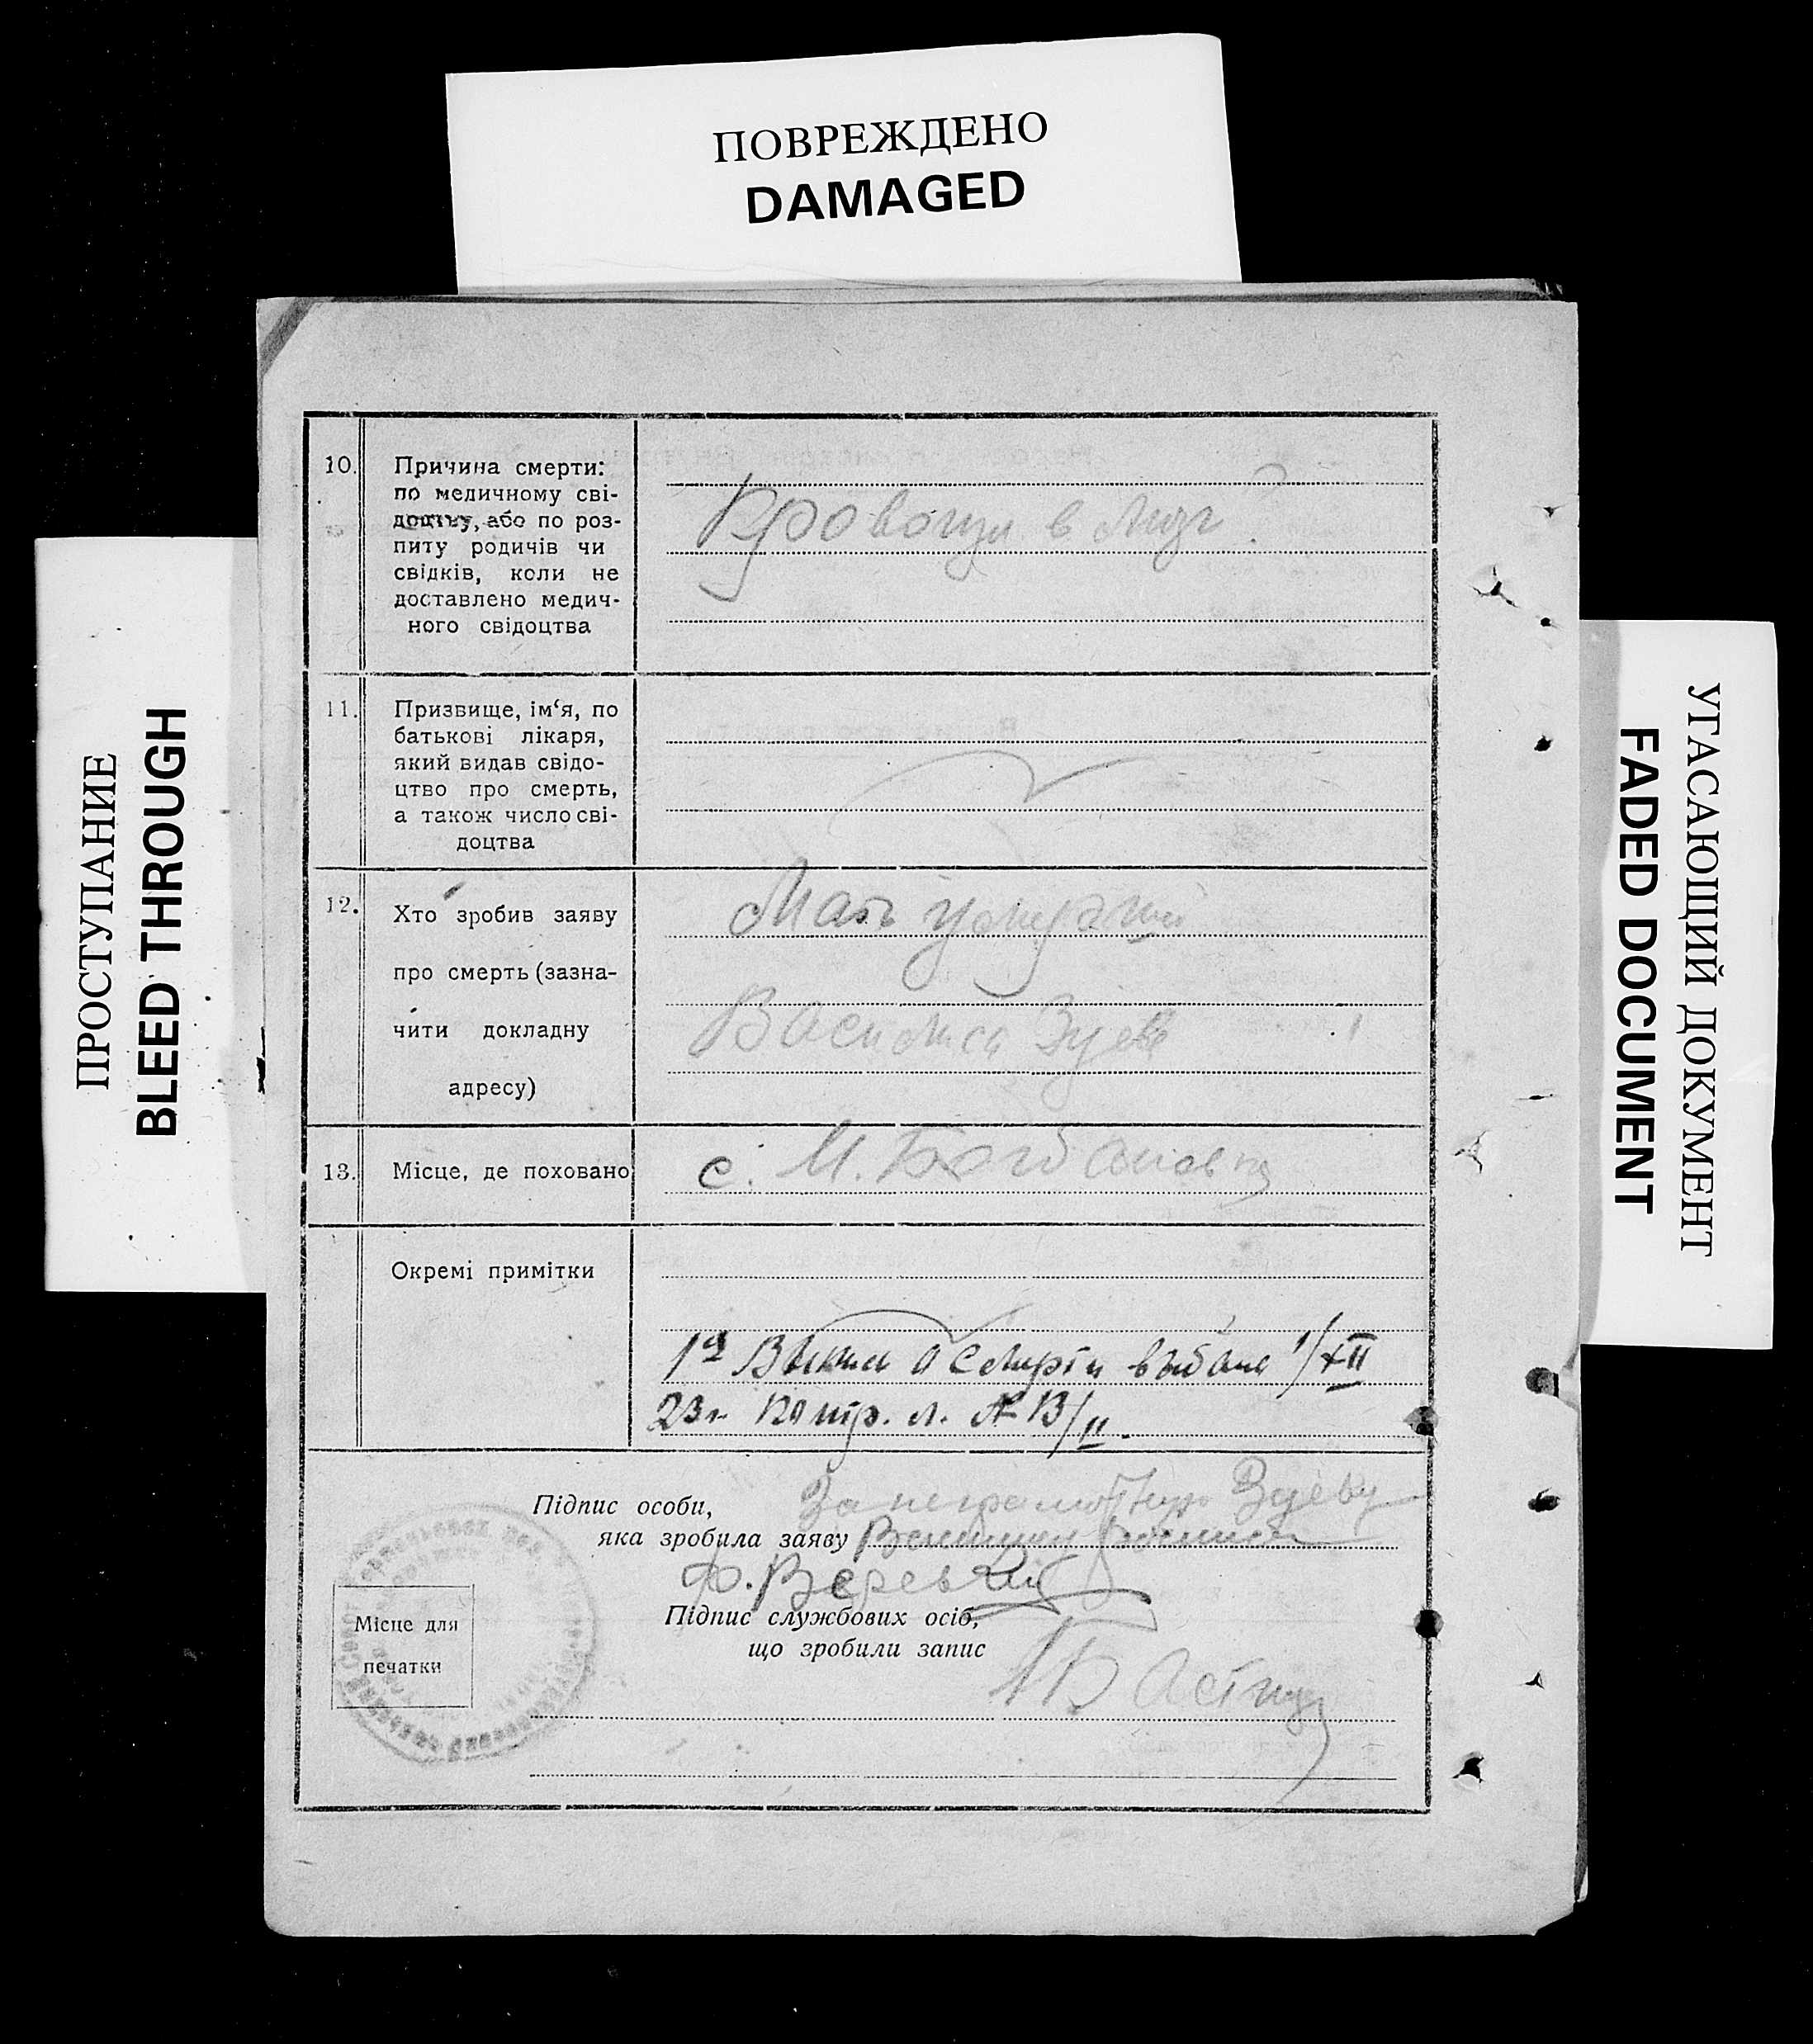 ПОВРЕЖДЕНО
DAMAGED
ПРОСТУПАНИЕ
BLEED THROUGH
УГАСАЮЩИЙ ДОКУМЕНТ
FADED DOCUMENT
10.
Причина смерти:
по медичному сві-
доцтву, або по роз-
питу родичів чи
свідків, коли не
доставлено медич-
ного свідоцтва
в мозг
11.
Призвище, ім‘я, по
батькові лікаря,
який видав свідо-
цтво про смерть,
а також число сві-
доцтва
12.
Хто зробив заяву
про смерть (зазна-
чити докладну
адресу)
Мать
Василиса Зуева
13.
Місце, де поховано
с. М. Богдановка
Окремі примітки
1я о смерти выдана 1/XII
23г. контр. л. № 13/II.
Підпис особи,
яка зробила заяву
За неграмотную Зуеву
Підпис службових осіб,
що зробили запис
Місце для
печатки